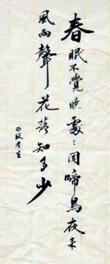 春眠不覺曉處〻聞啼鳥夜来
風雨聲花落知多少